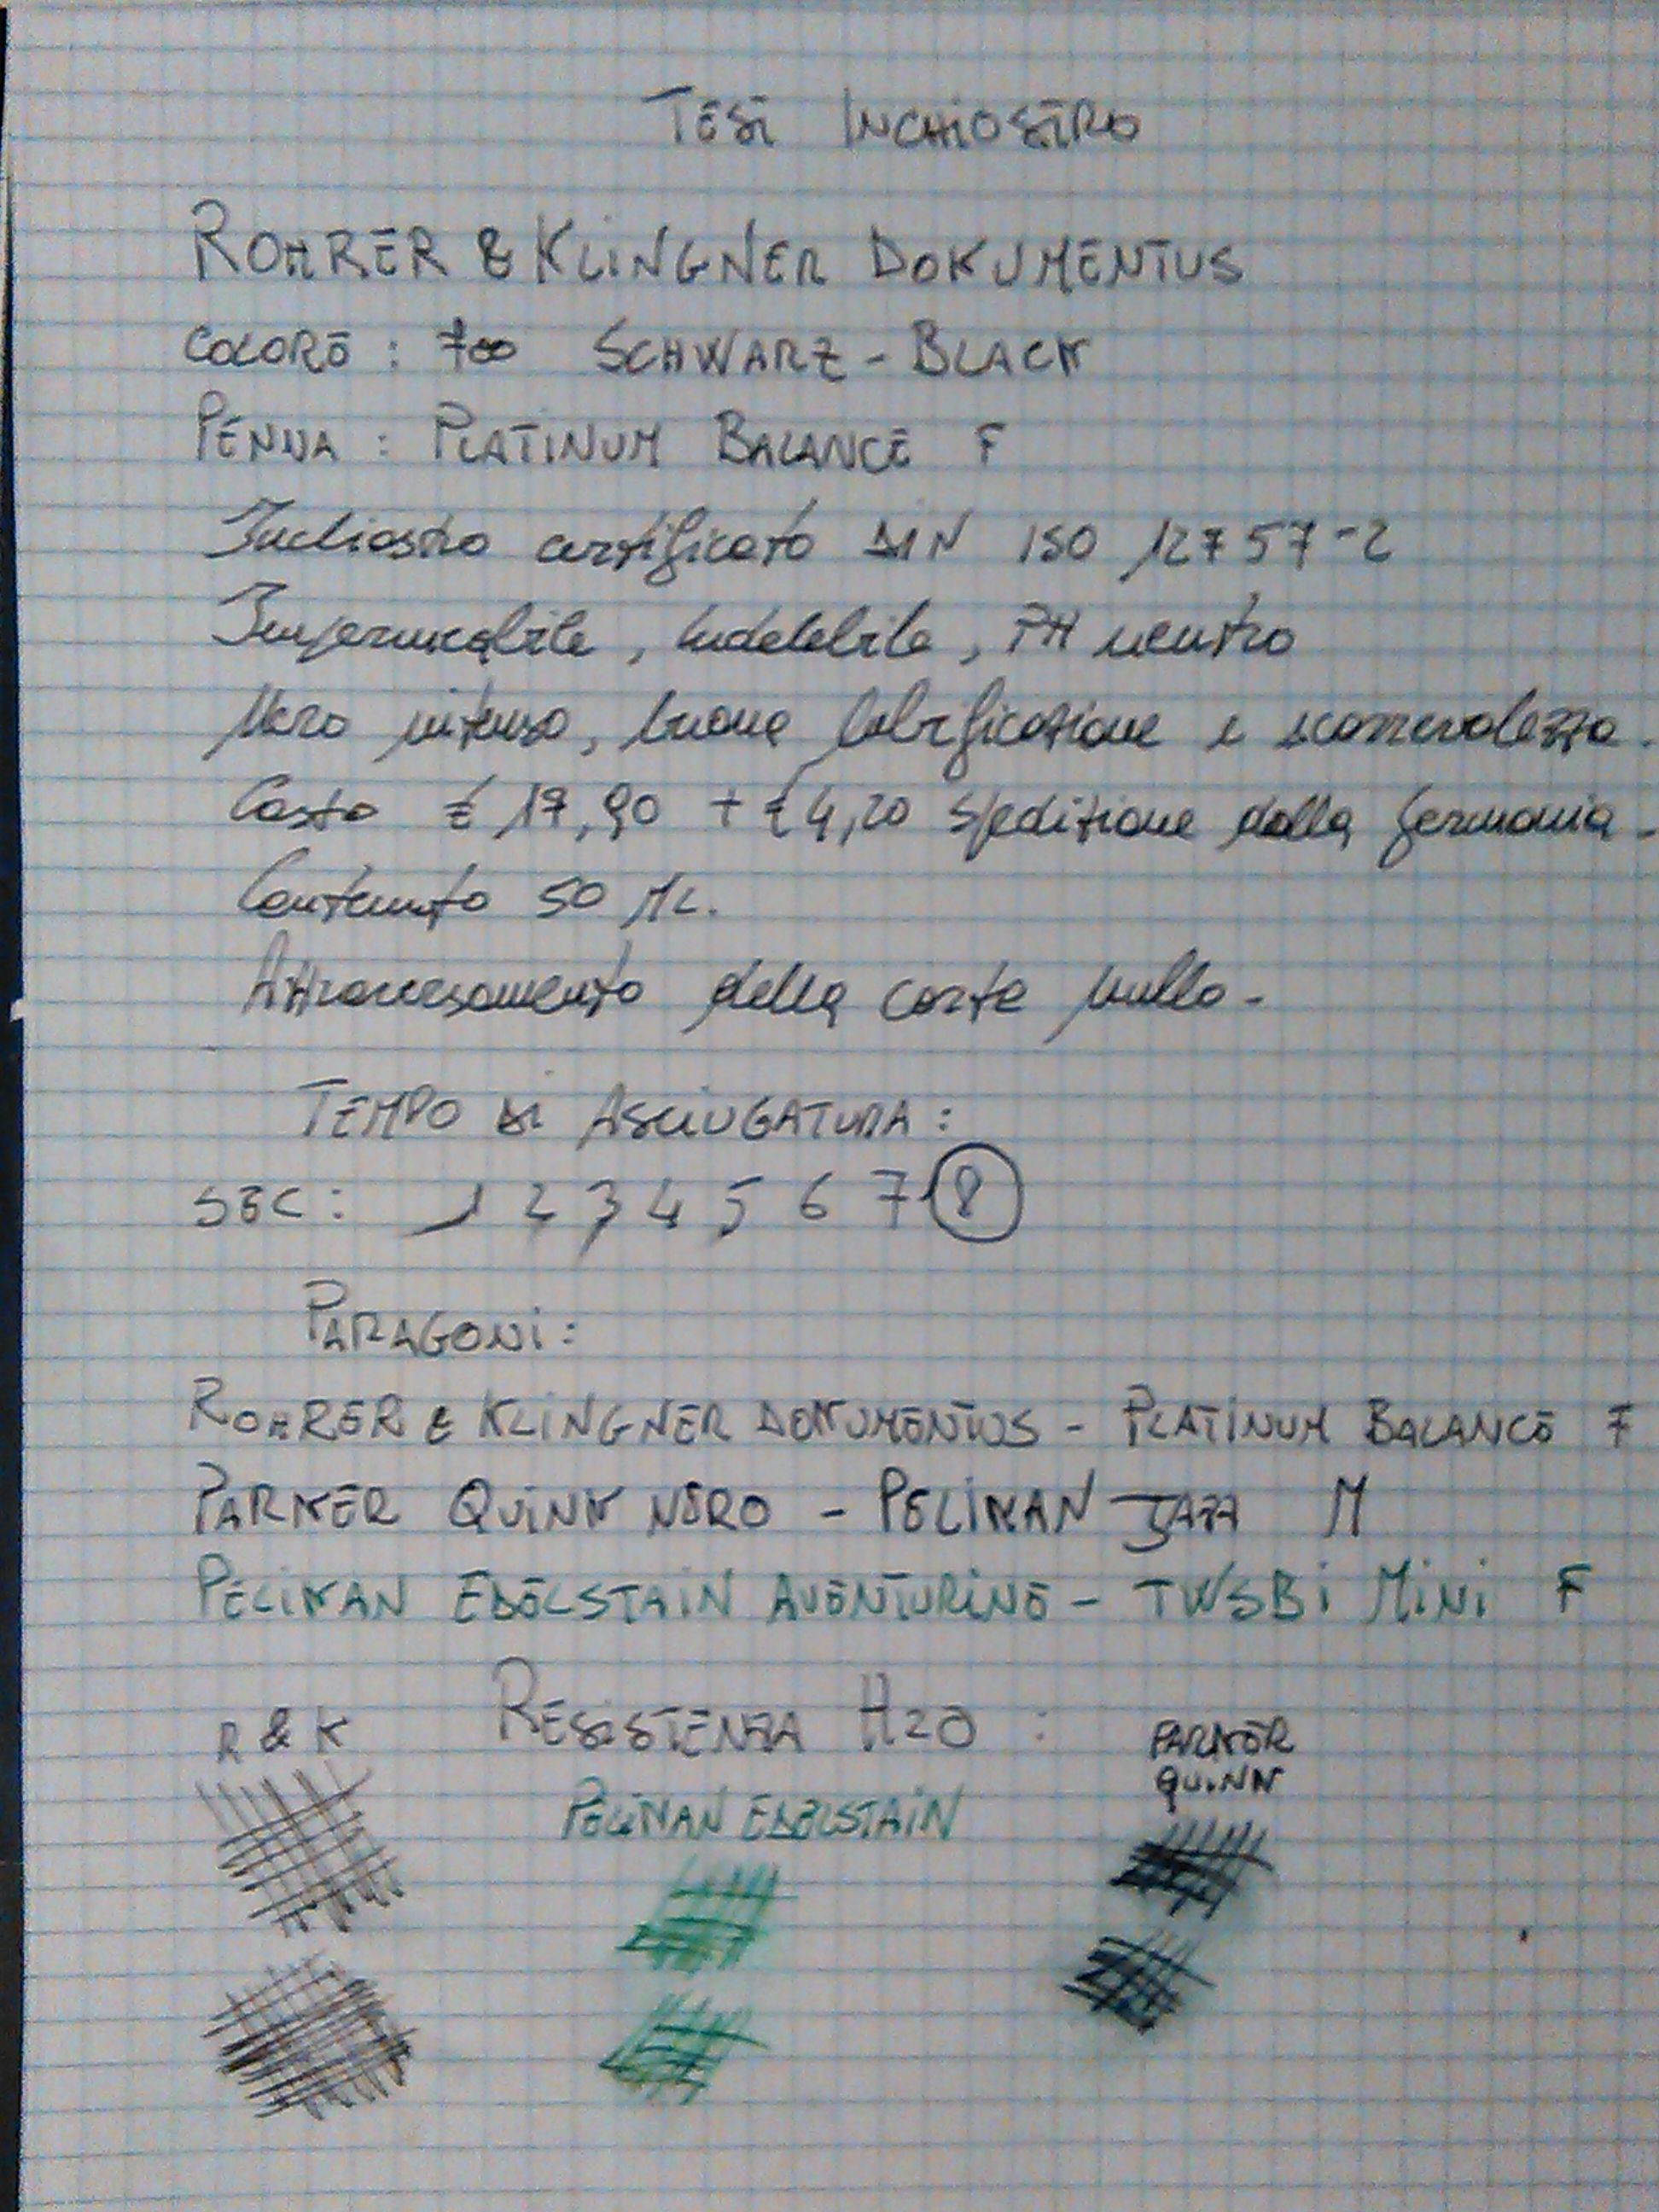 TEST INCHIOSTRO
ROHRER & KLINGNER DOKUMENTUS
COLORE : 700 SCHWARZ - BLACK
PENNA : PLATINUM BALANCE F
Inchiostro certificato DIN ISO 12757-2
Impermeabile, Indelebile, PH neutro
Nero intenso, buona lubrificazione e scorrevolezza.
Costo € 17,90 + € 4,20 spedizione dalla Germania -
Contenuto 50 ML.
Attraversamento della carta nullo -
TEMPO DI ASCIUGATURA :
SEC : 1 2 3 4 5 6 7 8
PARAGONI :
ROHRER & KLINGNER DOKUMENTUS - PLATINUM BALANCE F
PARKER QUINK NERO - PELIKAN JAZZ M
PELIKAN EDELSTAIN AVENTURINE - TWSBI MINI F
RESISTENZA H2O :
R & K
PELIKAN EDELSTAIN
PARKER
QUINK